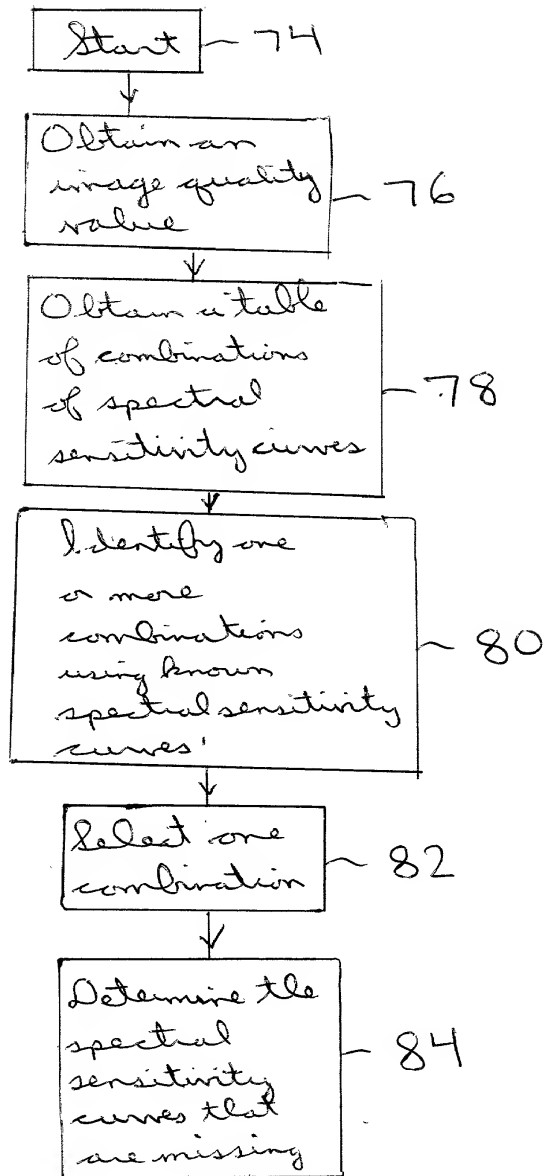 Start 74
Obtain an
image quality
value
76
Obtain a table
of combinations
of spectral
sensitivity curves
78
Identify one
or more
combinations
using known
spectral sensitivity
curves
80
Select one
combination
82
Determine the
spectral
sensitivity
curves that
are missing
84